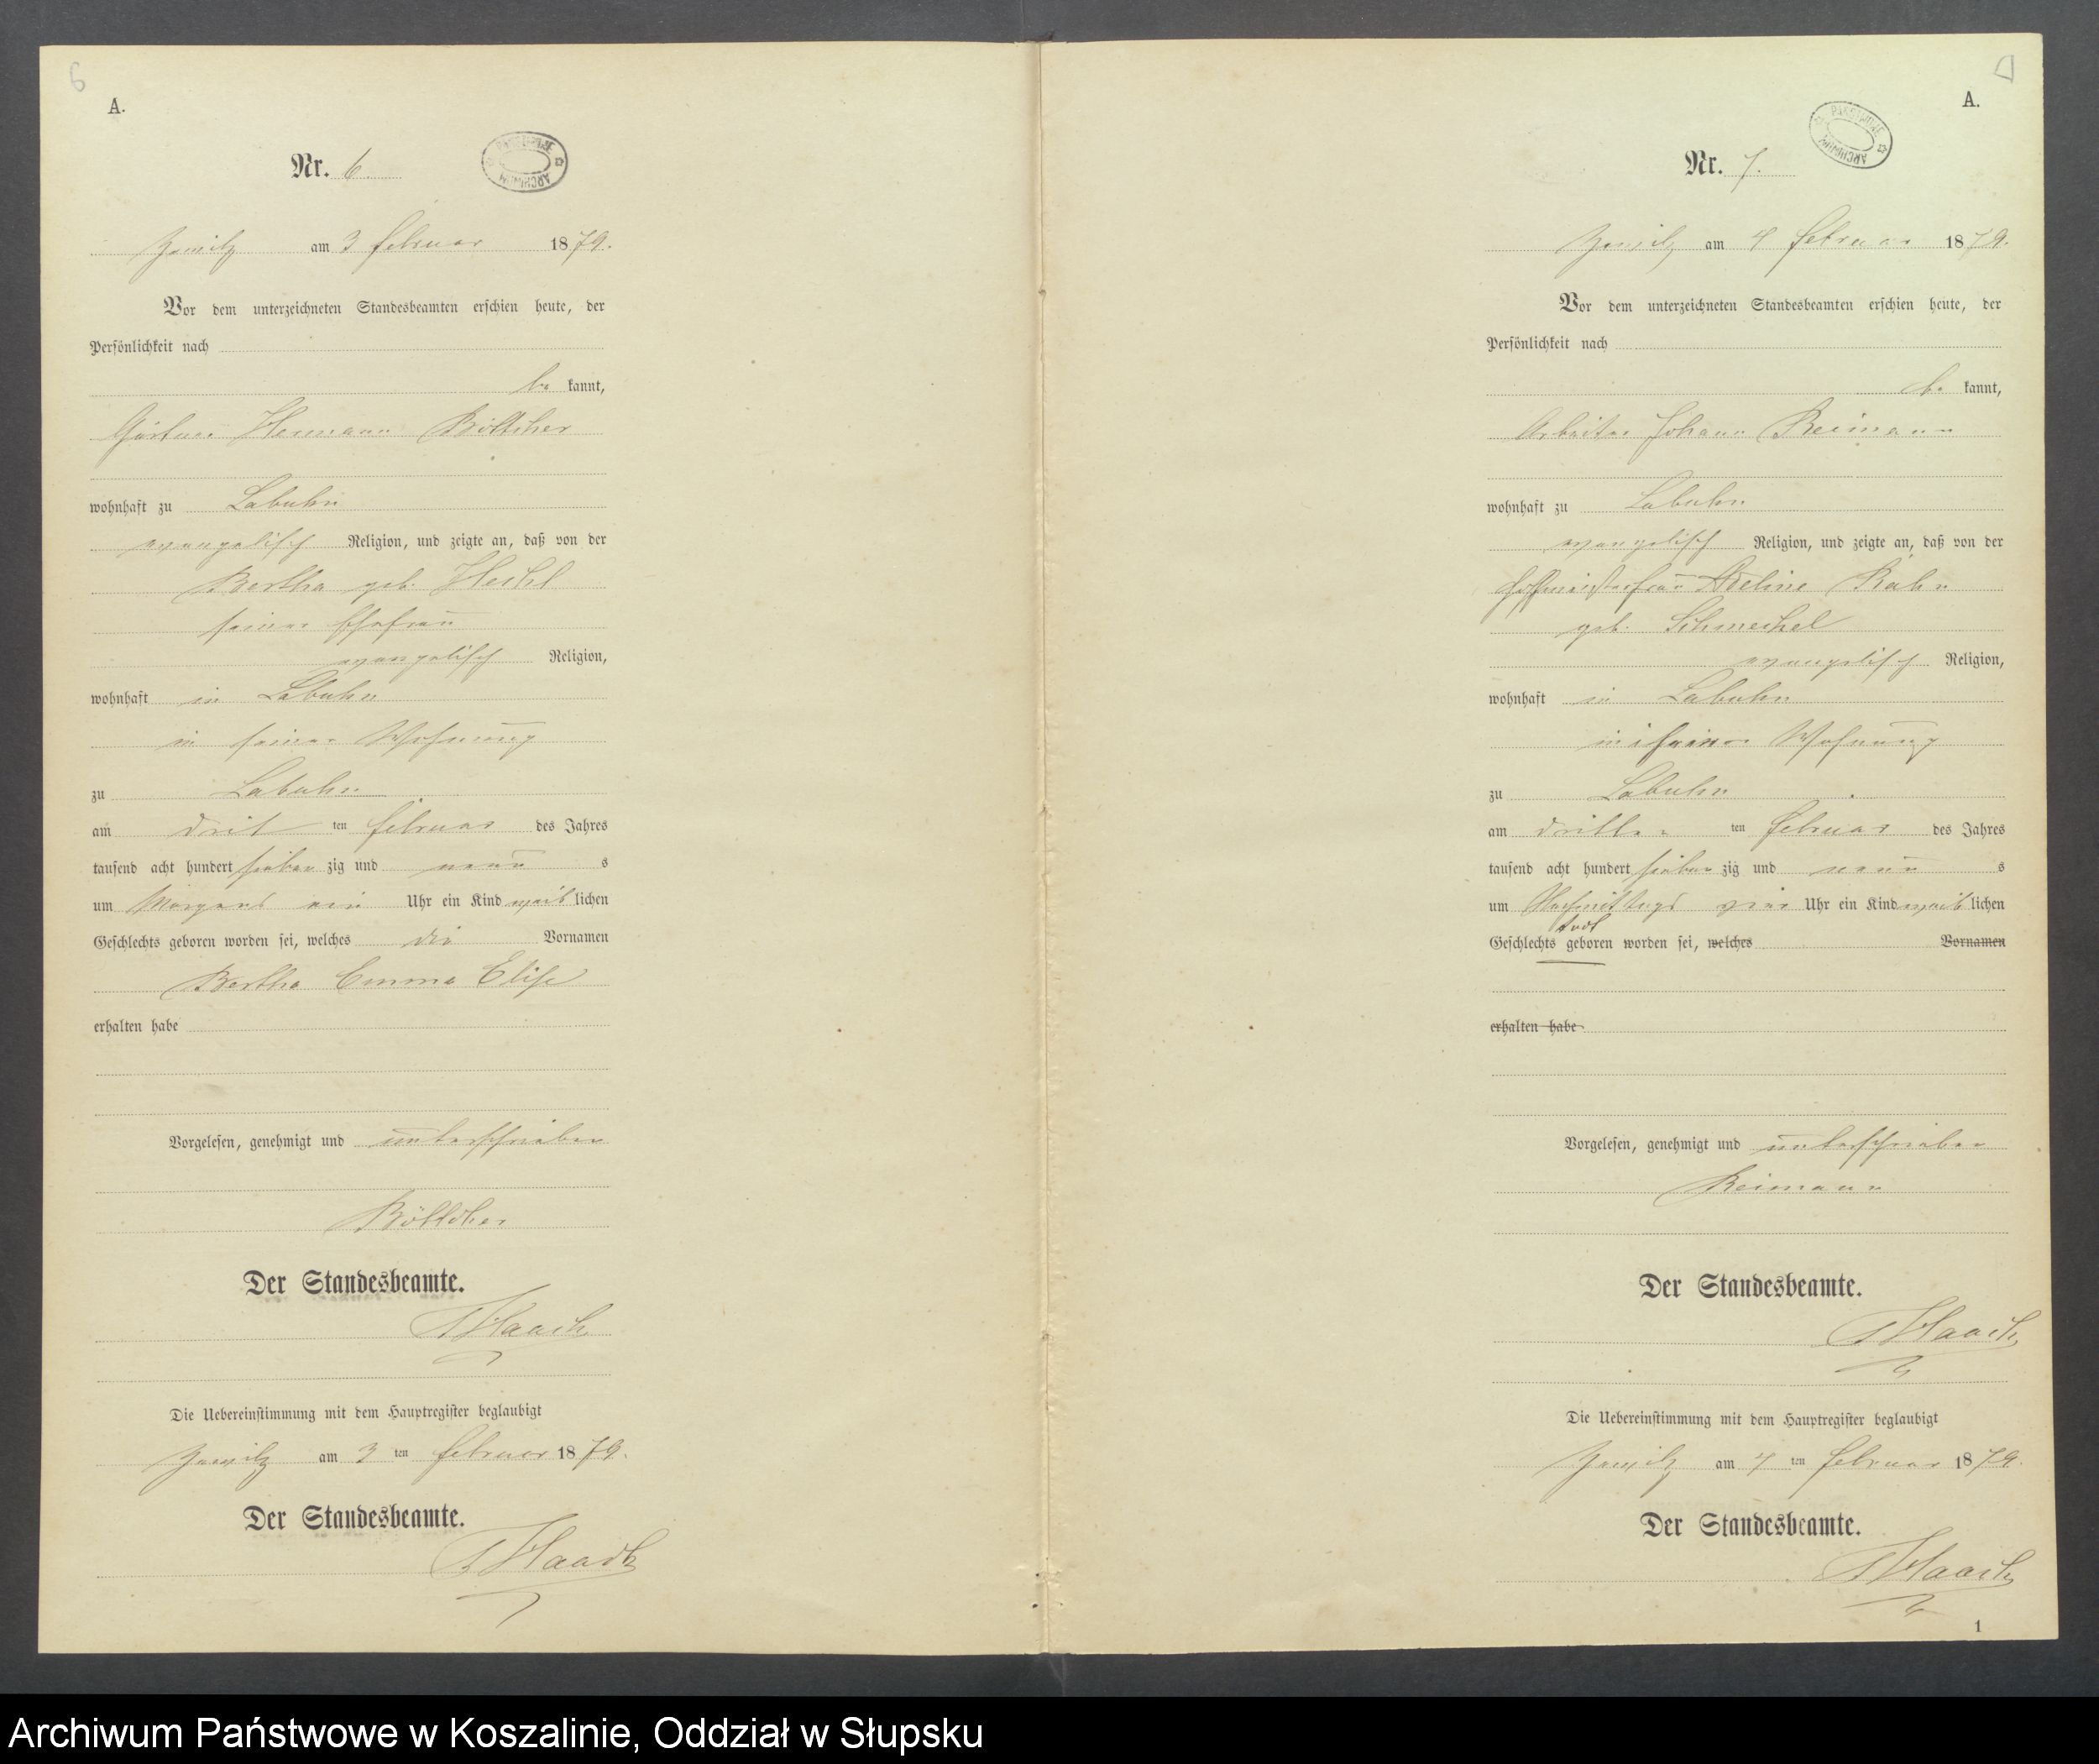 6
A.
Nr. 6.
ARCHIWUM PAŃSTWOWE
Zewitz am 3 Februar 1879.
Vor dem unterzeichneten Standesbeamten erschien heute, der
Persönlichkeit nach
be kannt,
Gärtner Hermann Böttcher
wohnhaft zu Labuhn
evangelisch Religion, und zeigte an, daß von der
Bertha geb.
seiner Ehefrau
evangelisch Religion,
wohnhaft in Labuhn
in seiner Wohnung
zu Labuhn
am drit ten Februar des Jahres
tausend acht hundert sieben zig und neun s
um Morgens ein Uhr ein Kind weib lichen
Geschlechts geboren worden sei, welches die Vornamen
Bertha Emma Elise
erhalten habe
Vorgelesen, genehmigt und unterschrieben
Böttcher
Der Standesbeamte.
Haack
Die Uebereinstimmung mit dem Hauptregister beglaubigt
Zewitz am 3 ten Februar 1879.
Der Standesbeamte.
Haack
A.
Nr. 7.
ARCHIWUM PAŃSTWOWE
Zewitz am 4 Februar 1879.
Vor dem unterzeichneten Standesbeamten erschien heute, der
Persönlichkeit nach
be kannt,
Arbeiter Johann Reimann
wohnhaft zu Labuhn
evangelisch Religion, und zeigte an, daß von der
Hofmeisterfrau Adeline Rahn
geb. Schmechel
evangelisch Religion,
wohnhaft in Labuhn
in ihrer Wohnung
zu Labuhn
am dritten ten Februar des Jahres
tausend acht hundert sieben zig und neun s
um Nachmittags vier Uhr ein Kind weib lichen
todt
Geschlechts geboren worden sei, welches Vornamen
erhalten habe
Vorgelesen, genehmigt und unterschrieben
Reimann
Der Standesbeamte.
Haack
Die Uebereinstimmung mit dem Hauptregister beglaubigt
Zewitz am 4 ten Februar 1879.
Der Standesbeamte.
Haack
1
Archiwum Państwowe w Koszalinie, Oddział w Słupsku